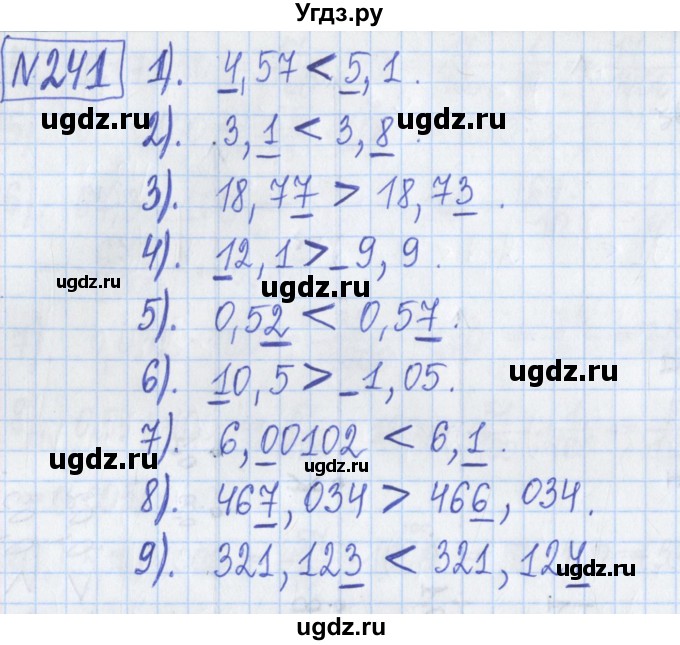 Угдз.ру
№241 1). 4,57 < 5,1.
ugdz.ru ugdz.ru
2). 3,1 < 3,8.
3). 18,77 > 18,73.
4). 12,1 > 9,9.
ugdz.ru ugdz.ru
5). 0,52 < 0,57.
6). 10,5 > 1,05.
7). 6,00102 < 6,1.
ugdz.ru ugdz.ru
8). 467,034 > 466,034.
9). 321,123 < 321,124
ugdz.ru ugdz.ru
ugdz.ru